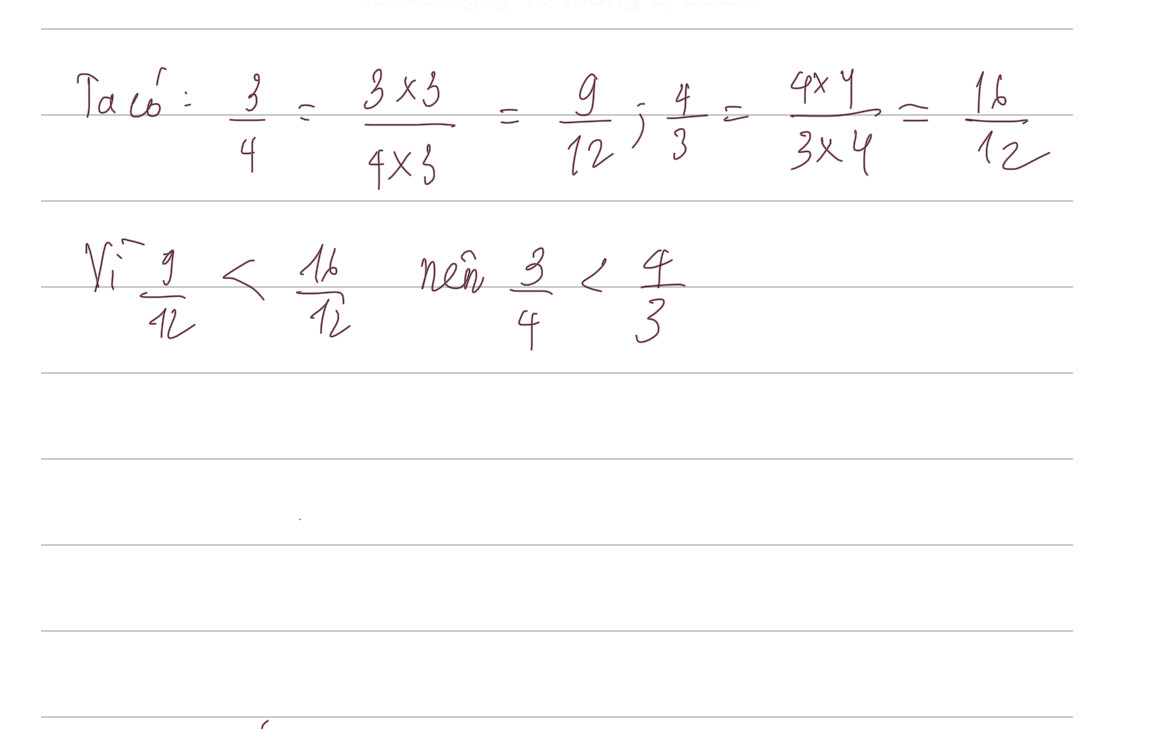 Ta có: 3/4 = 3×3/4×3 = 9/12 ; 4/3 = 4×4/3×4 = 16/12
Vì 9/12 < 16/12 nên 3/4 < 4/3